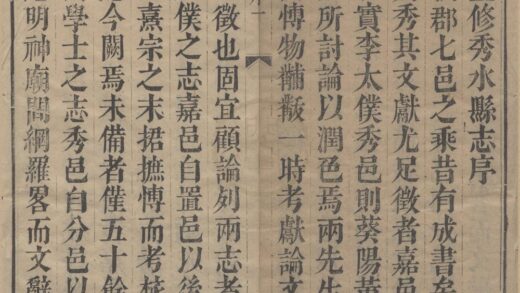 修秀水縣志序
郡七邑之乘昔有成書矣
秀其文獻尤足徵者嘉邑
實李太僕秀邑則葵陽黃
所討論以潤色焉兩先生
博物黼黻一時考獻論文
徵也固宜顧論列兩志者
僕之志嘉邑自置邑以後
熹宗之末捃摭博而考核
今闕焉未備者僅五十餘
學士之志秀邑自分邑以
明神廟間綱羅畧而文辭